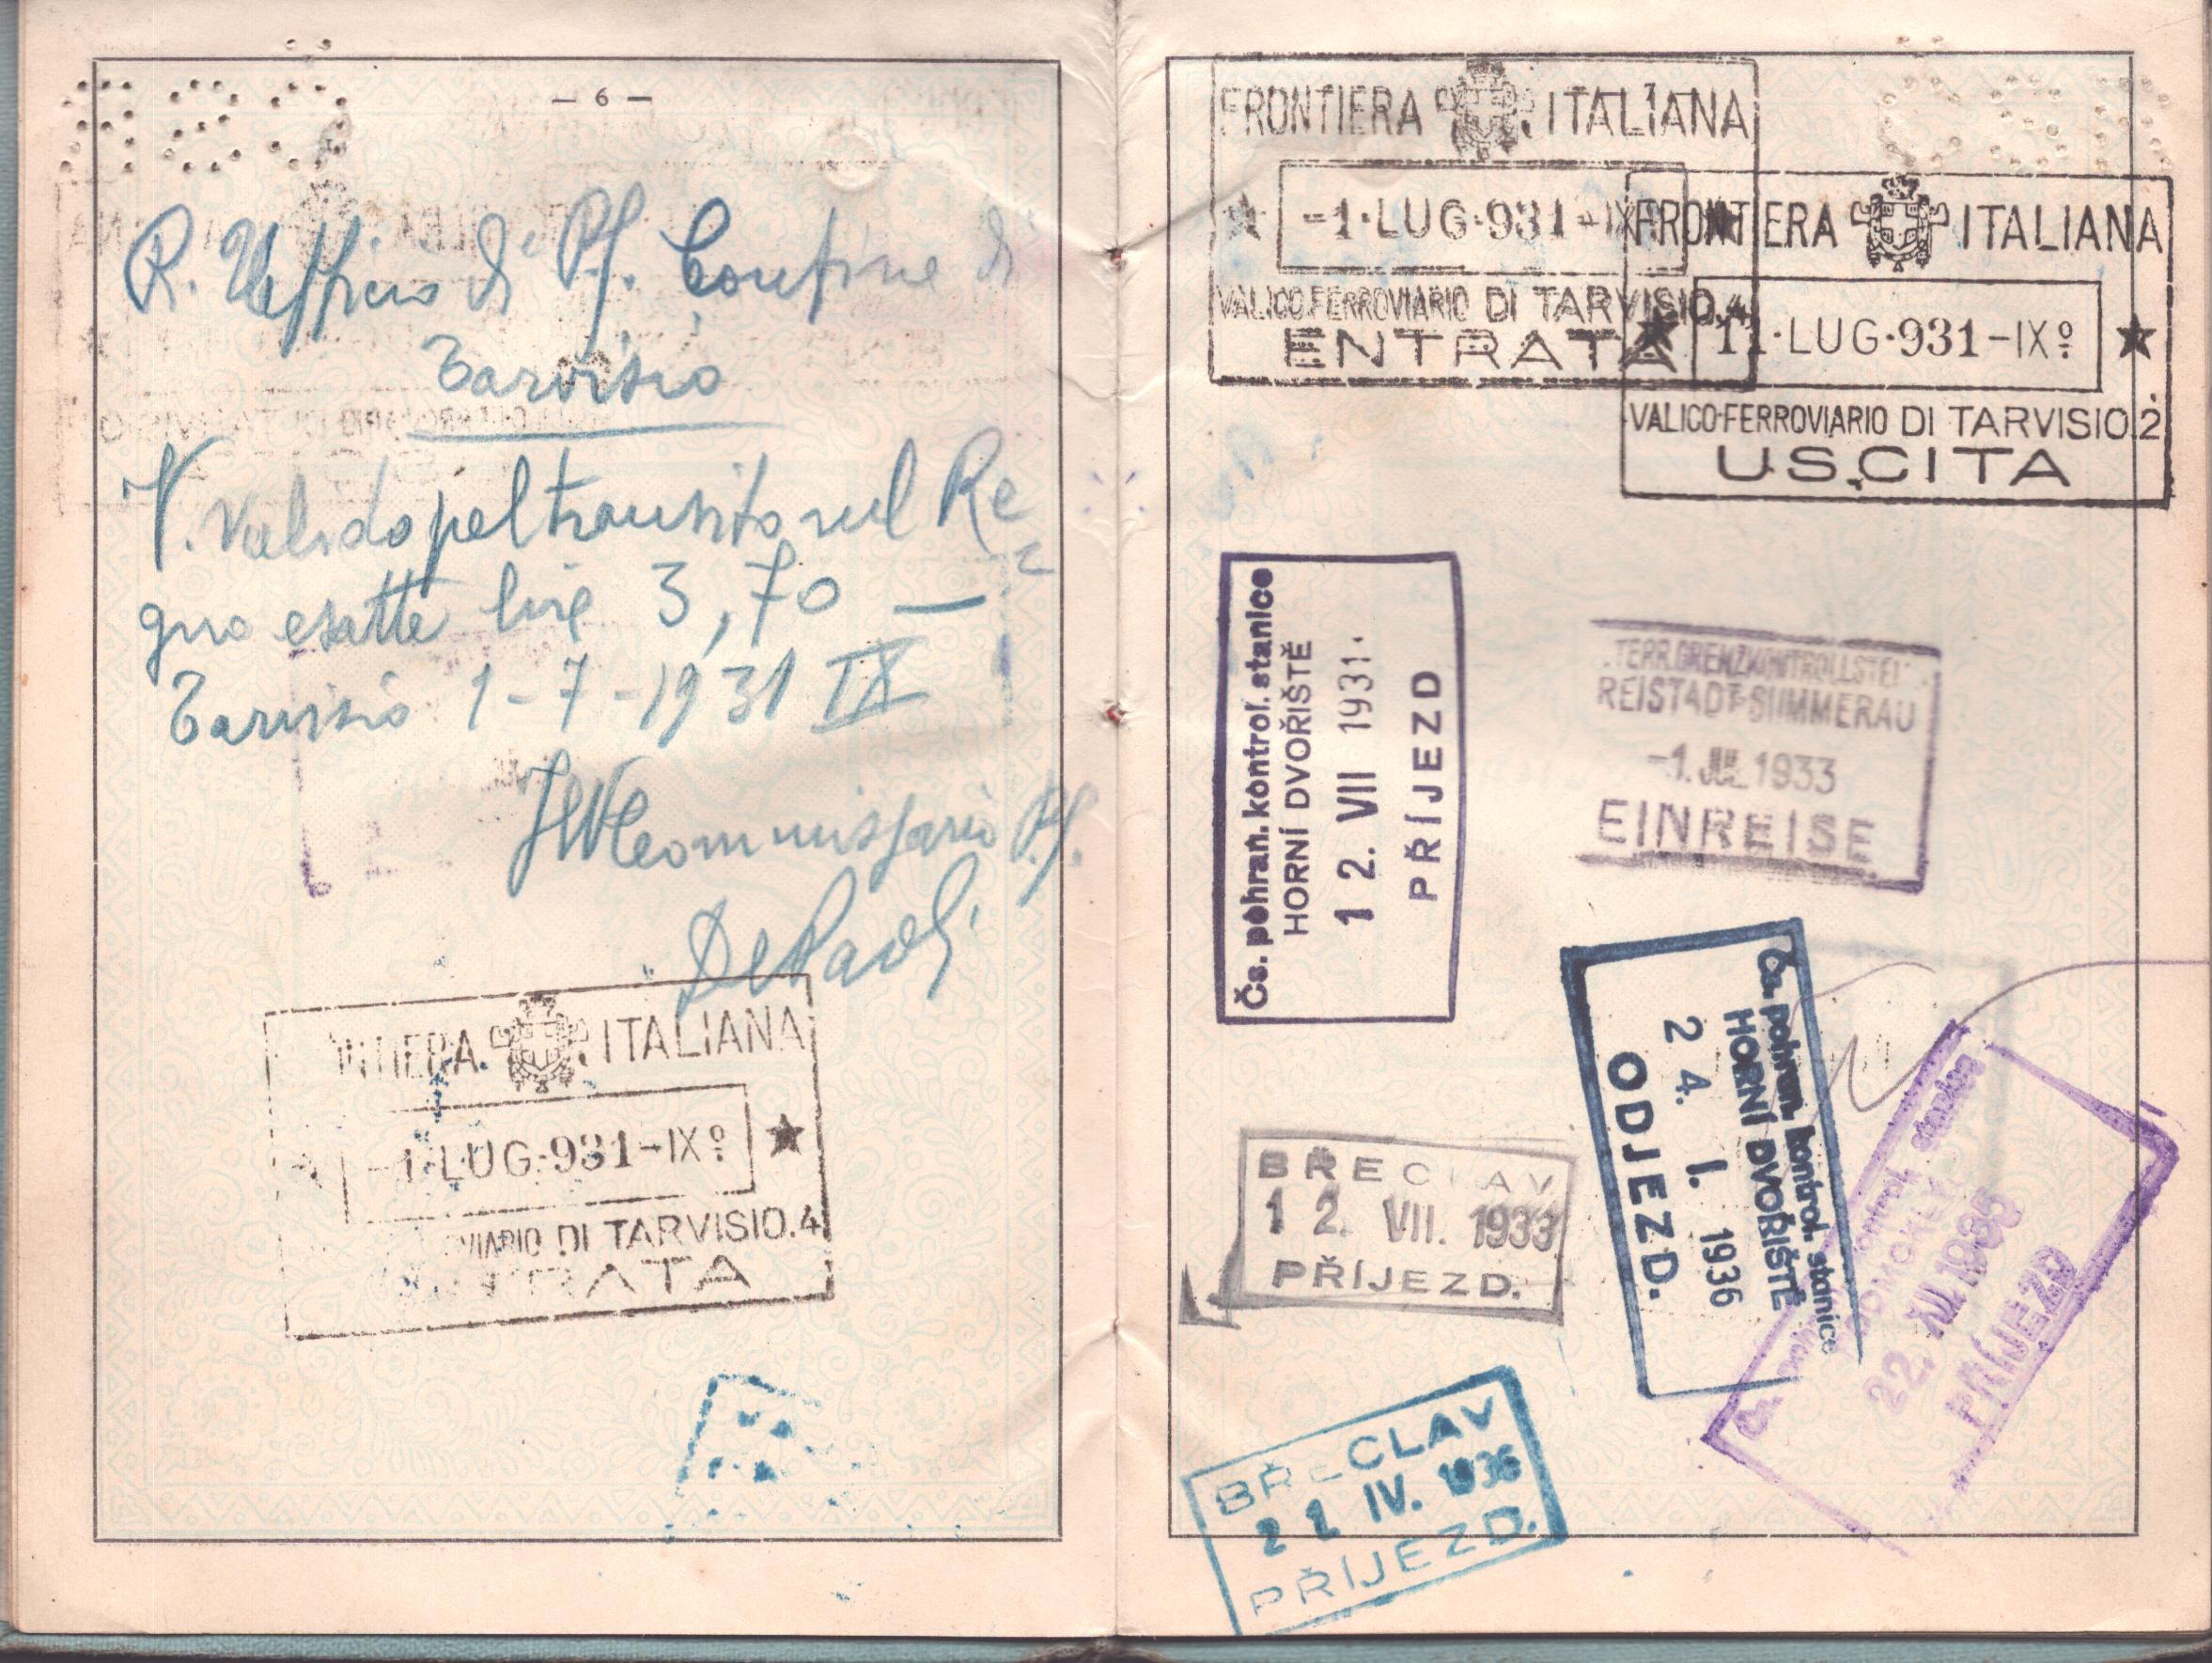 — 6 —
R. Ufficio di P.S. Confine di
Tarvisio
V. Valido pel transito sul Re=
gno esatte lire 3,70 —
Tarvisio 1-7-1931 IX
Il V Commissario P.S.
De Paoli
NTIERA ITALIANA
-1·LUG·931-IXº
VIARIO DI TARVISIO.4
NTRATA
FRONTIERA ITALIANA
-1·LUG·931-IX
VALICO·FERROVIARIO DI TARVISIO.4
ENTRATA
FRONTIERA ITALIANA
11·LUG·931-IXº
VALICO·FERROVIARIO DI TARVISIO.2
USCITA
Čs. pohran. kontrol. stanice
HORNÍ DVOŘIŠTĚ
12. VII 1931.
PŘÍJEZD
TERR. GRENZKONTROLLSTE
REISTADT-SUMMERAU
-1. JUL 1933
EINREISE
Čs. pohran. kontrol. stanice
HORNÍ DVOŘIŠTĚ
24. I. 1936
ODJEZD.
BŘECLAV
12. VII. 1933
PŘÍJEZD.
kontrol. stanice
22. XII. 1935
PŘÍJEZD
BŘECLAV
IV. 1936
PŘÍJEZD.